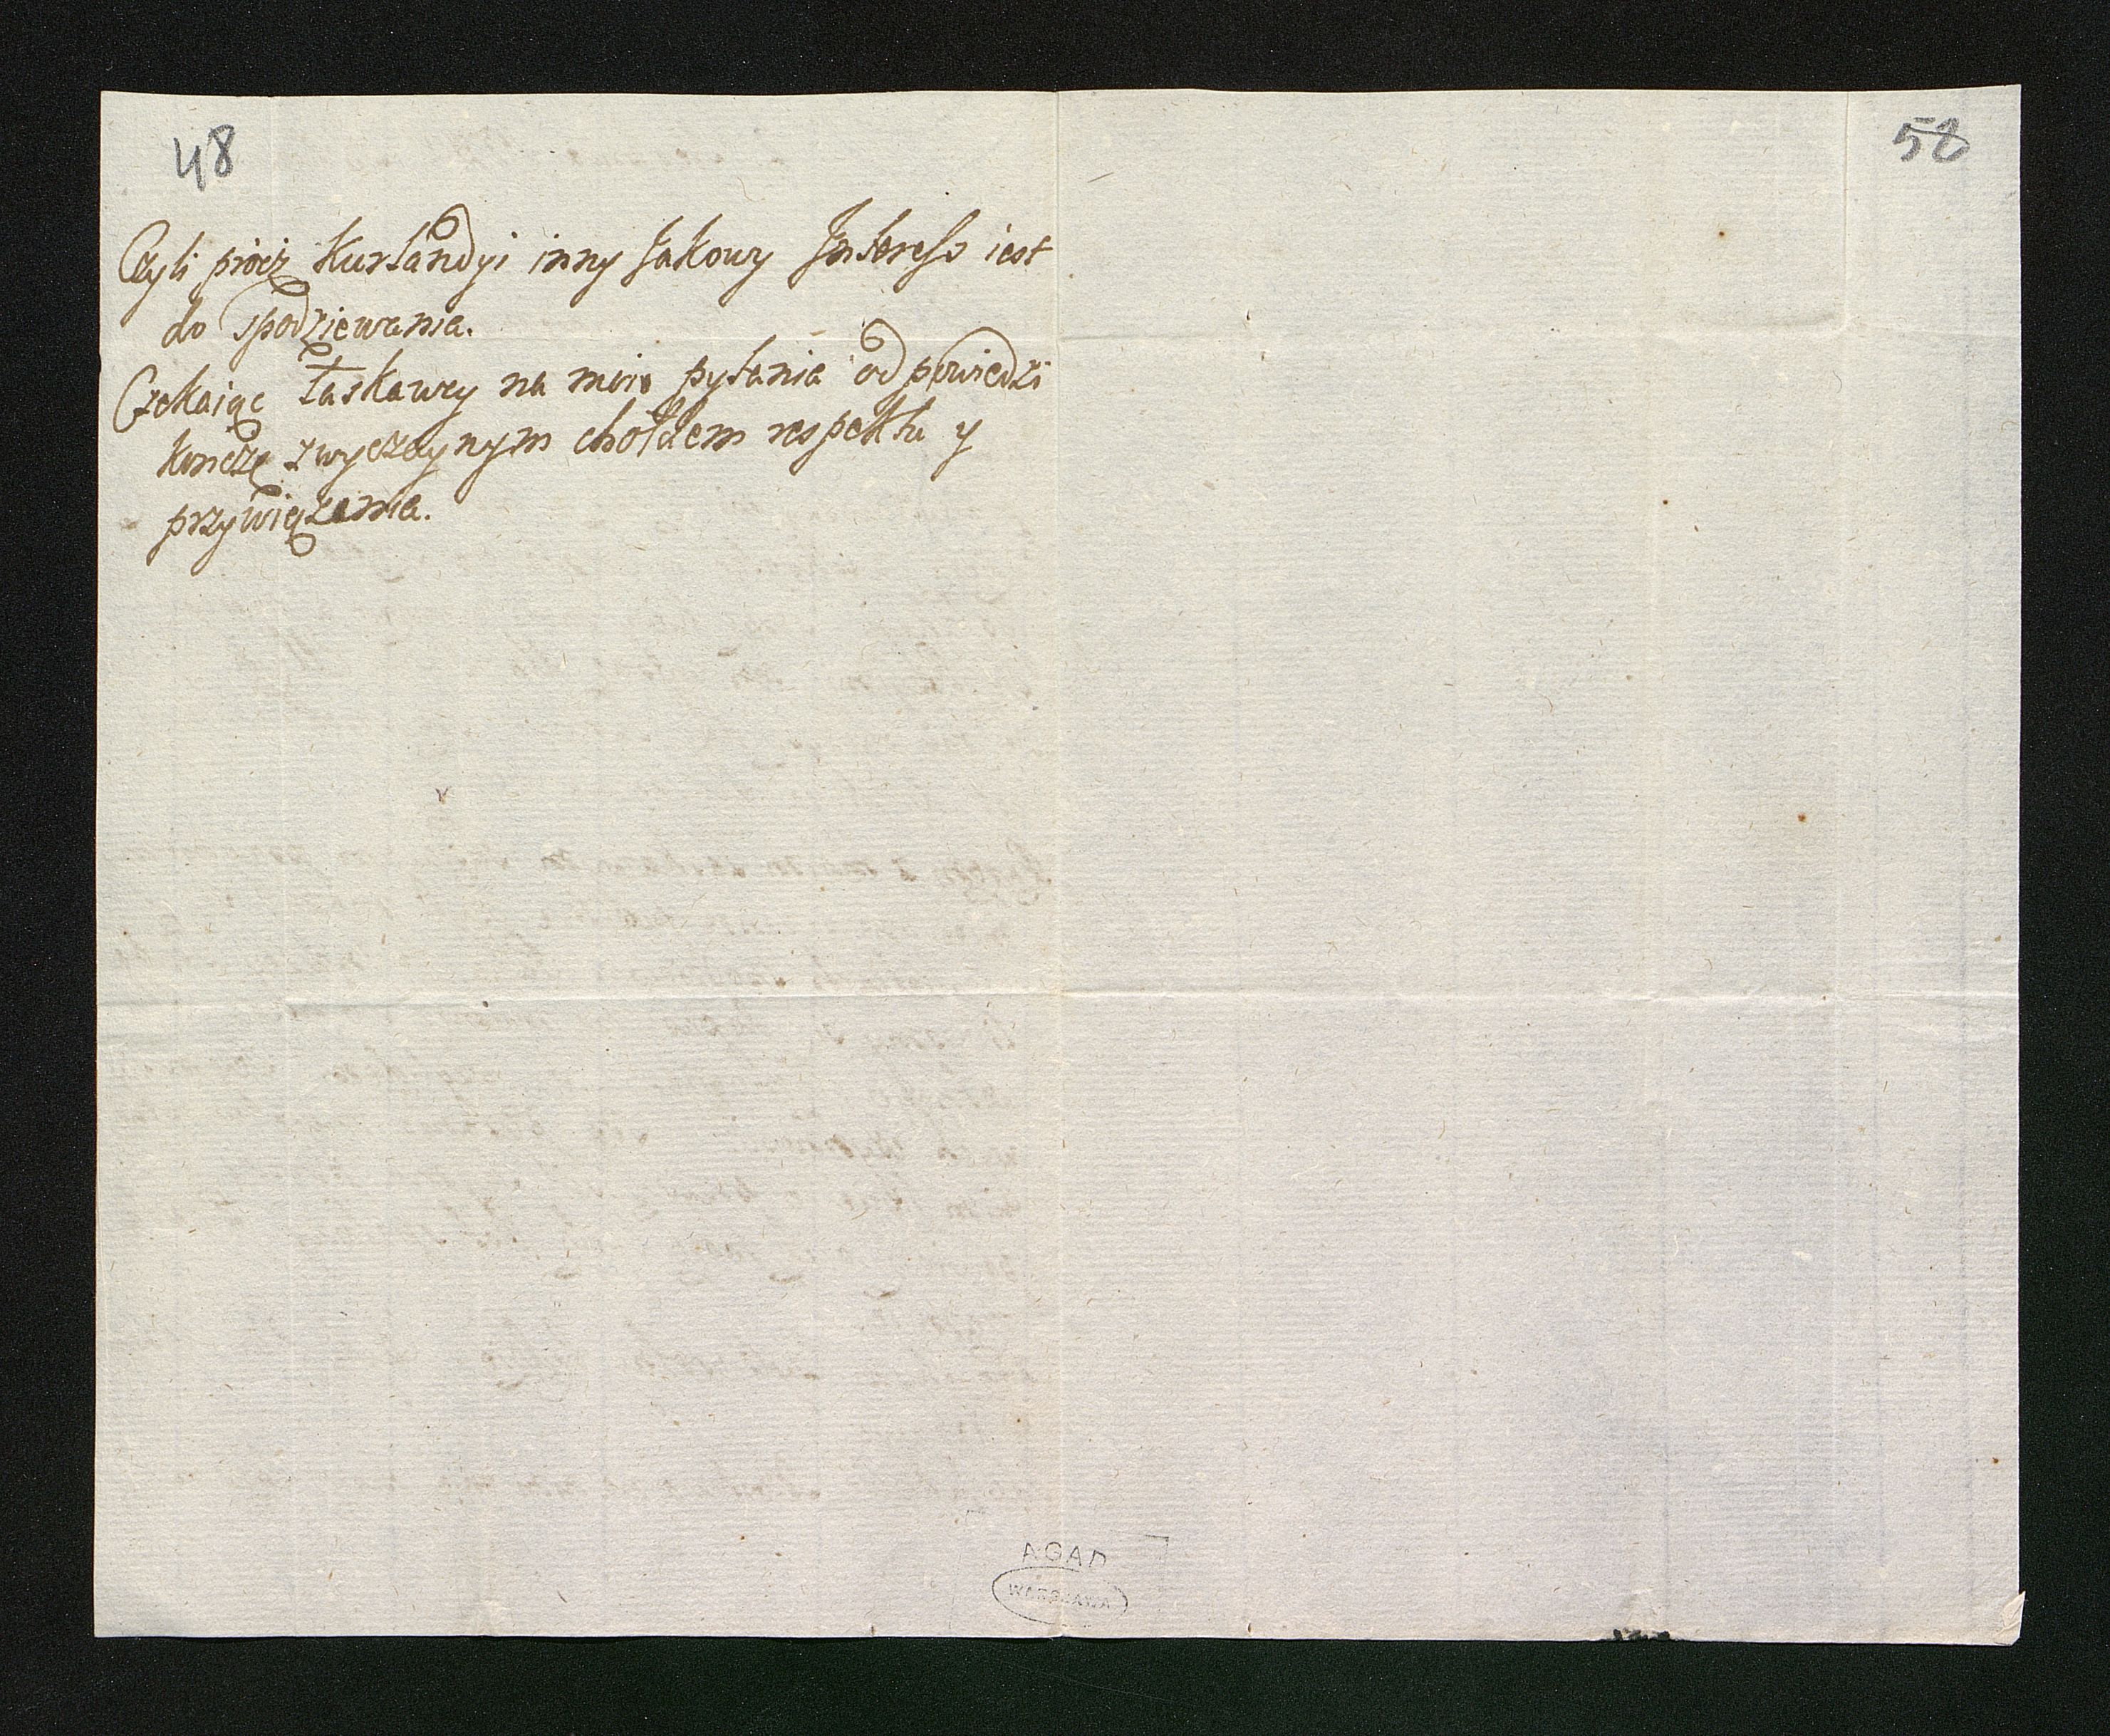 48
58
Czyli prócz Kurlandyi inny Jakowy Interess iest
do spodziewania.
Czekaiąc łaskawey na moie pytania odpowiedzi
kończę zwyczaynym chołdem respektu y
przywiązania.
AGAD
WARSZAWA